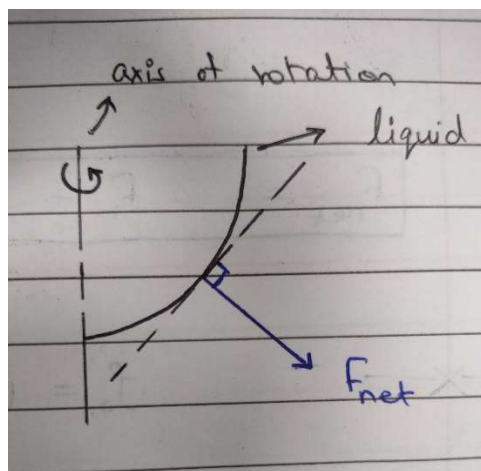 axis of rotation
liquid
Fnet